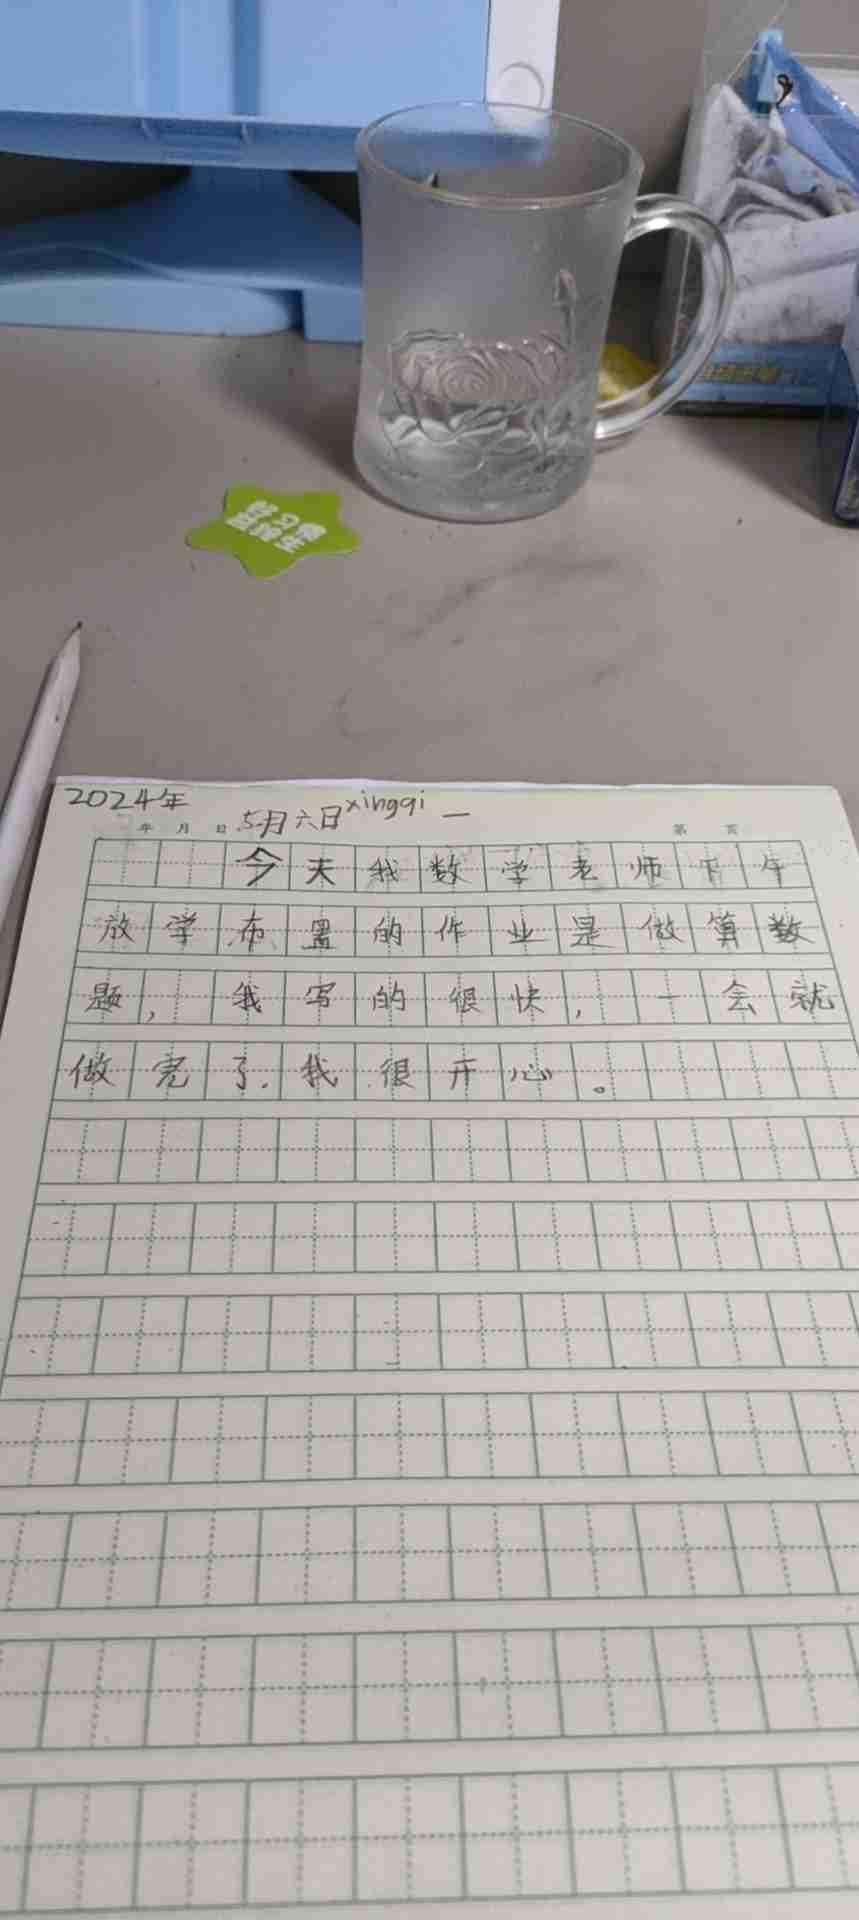 2024年
5月六日xingqi一
年 月 日 第 页
今天我数学老师下午
放学布置的作业是做算数
题，我写的很快，一会就
做完了.我很开心。